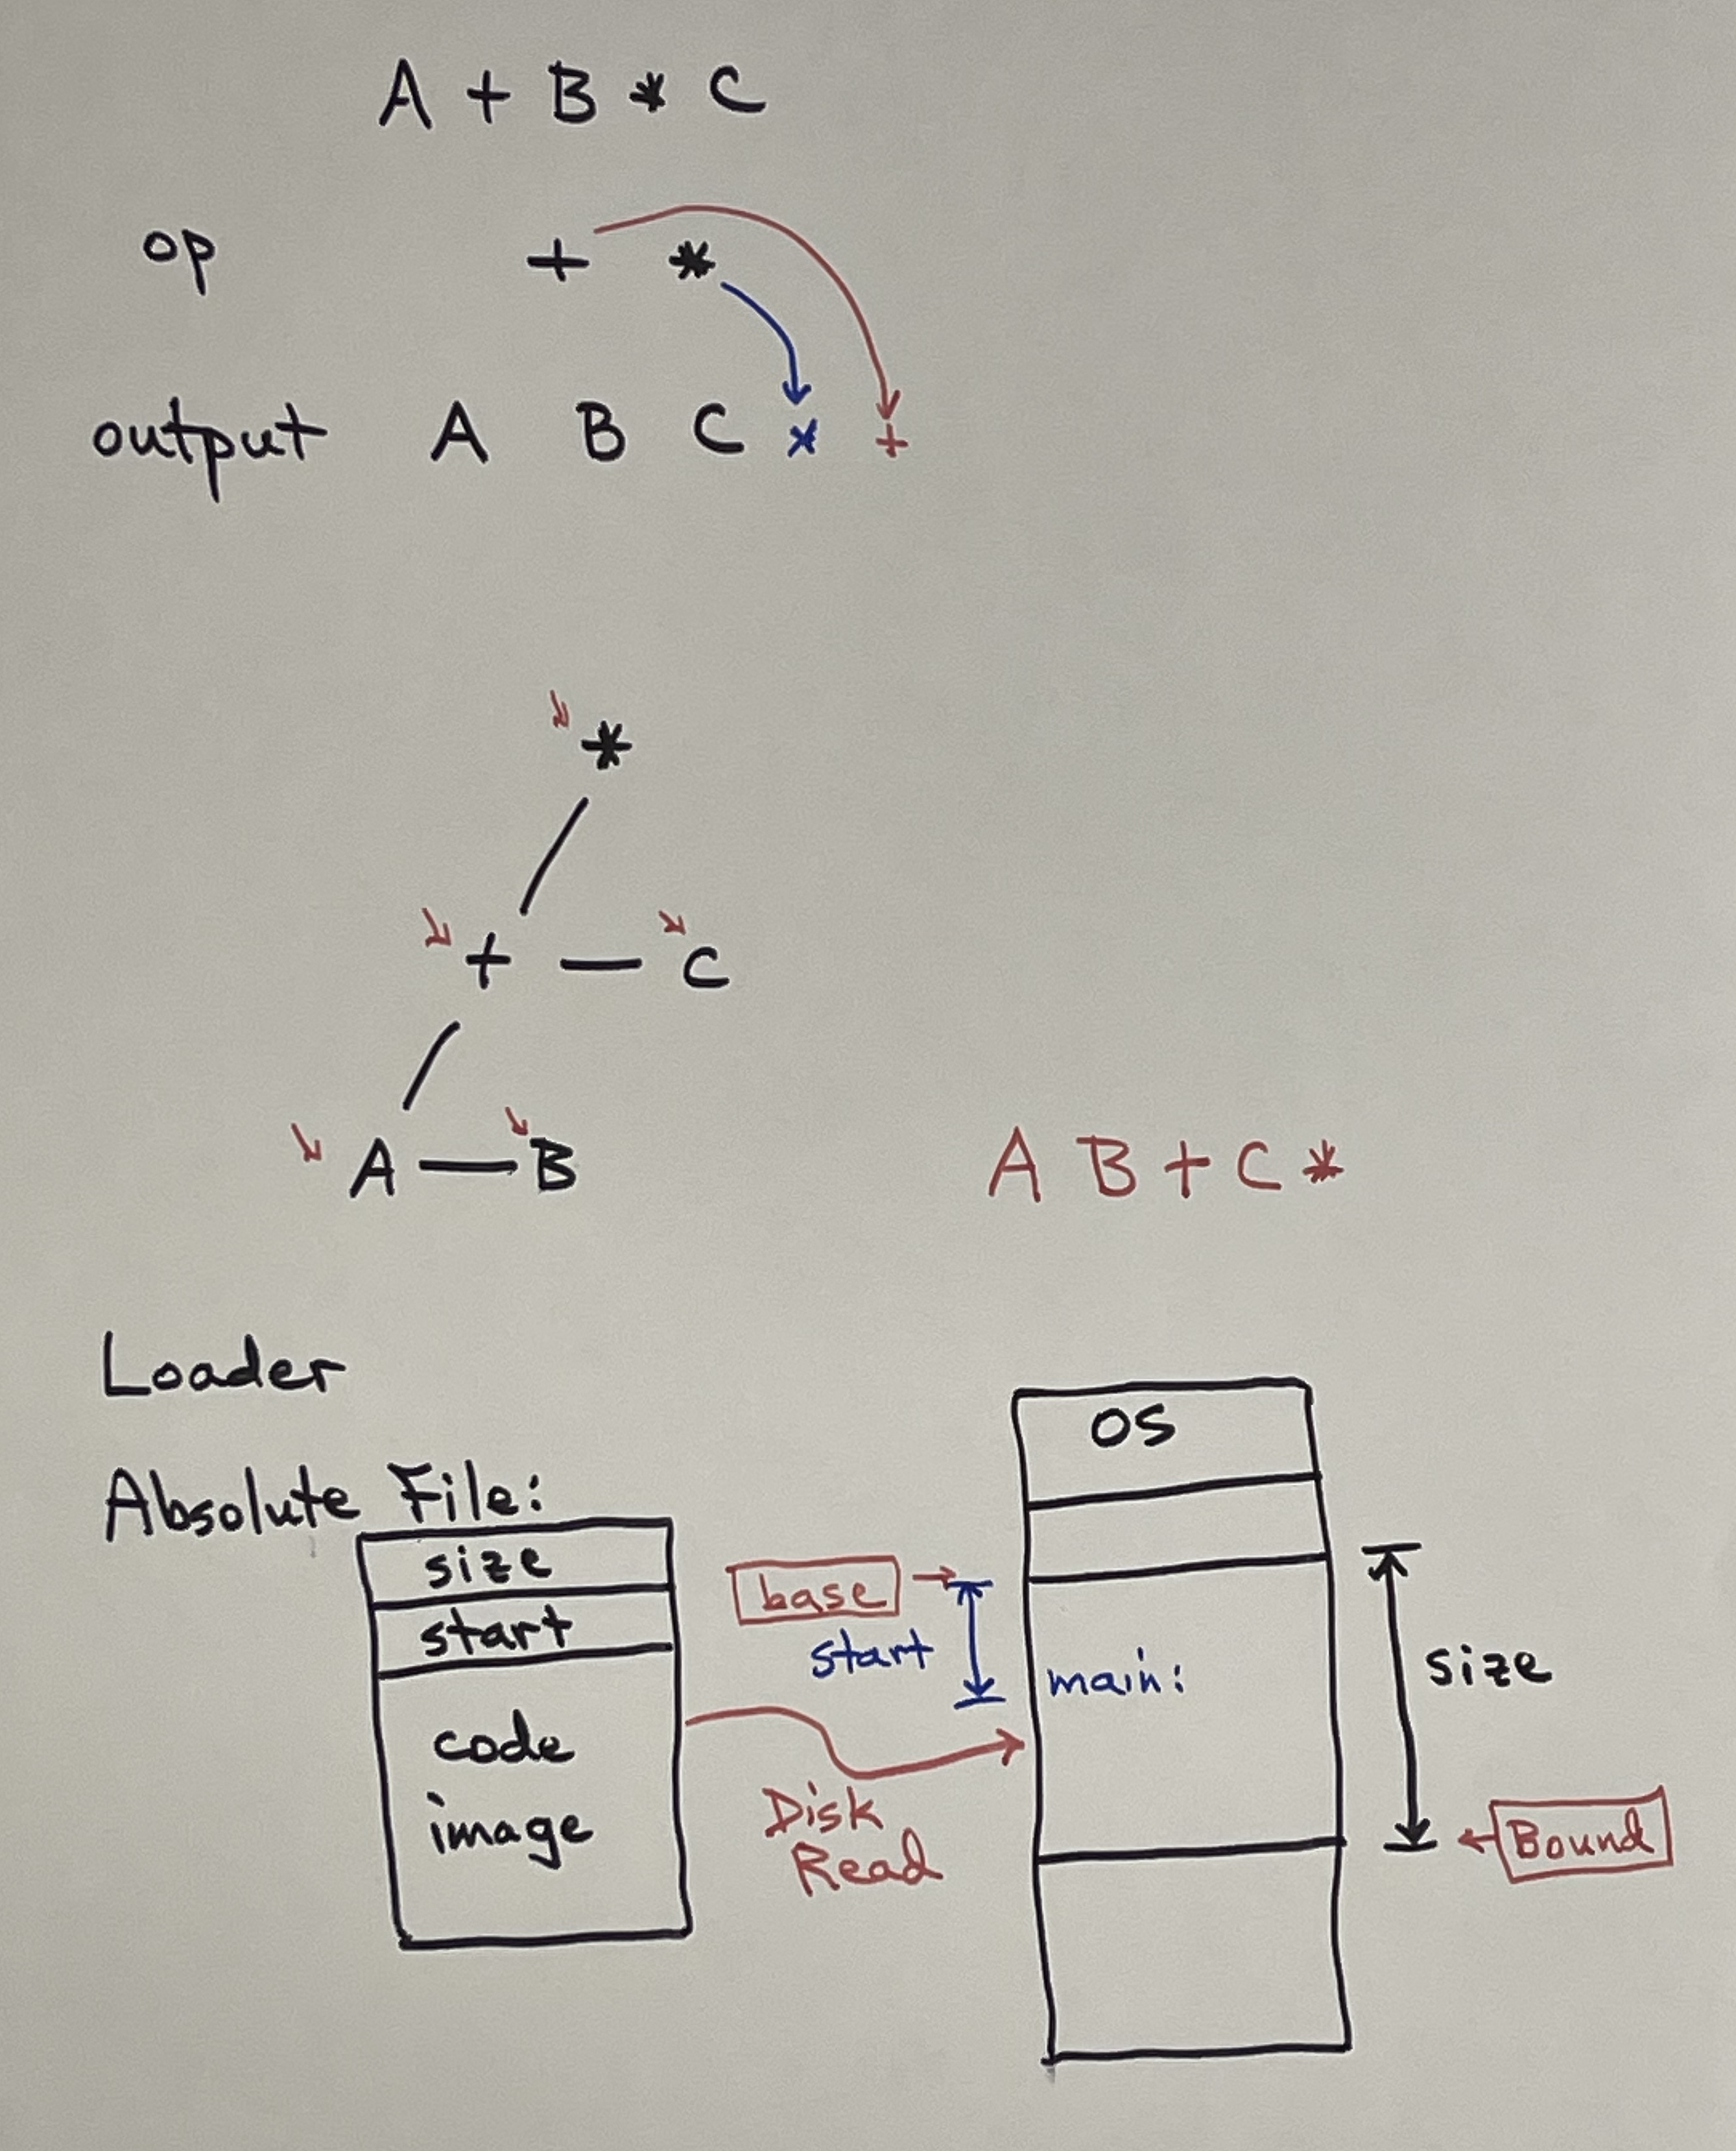 A + B * C
op + *
output A B C * +
*
+ C
A B
A B + C *
Loader
Absolute File:
size
start
code
image
base
start
Disk
Read
OS
main:
size
Bound